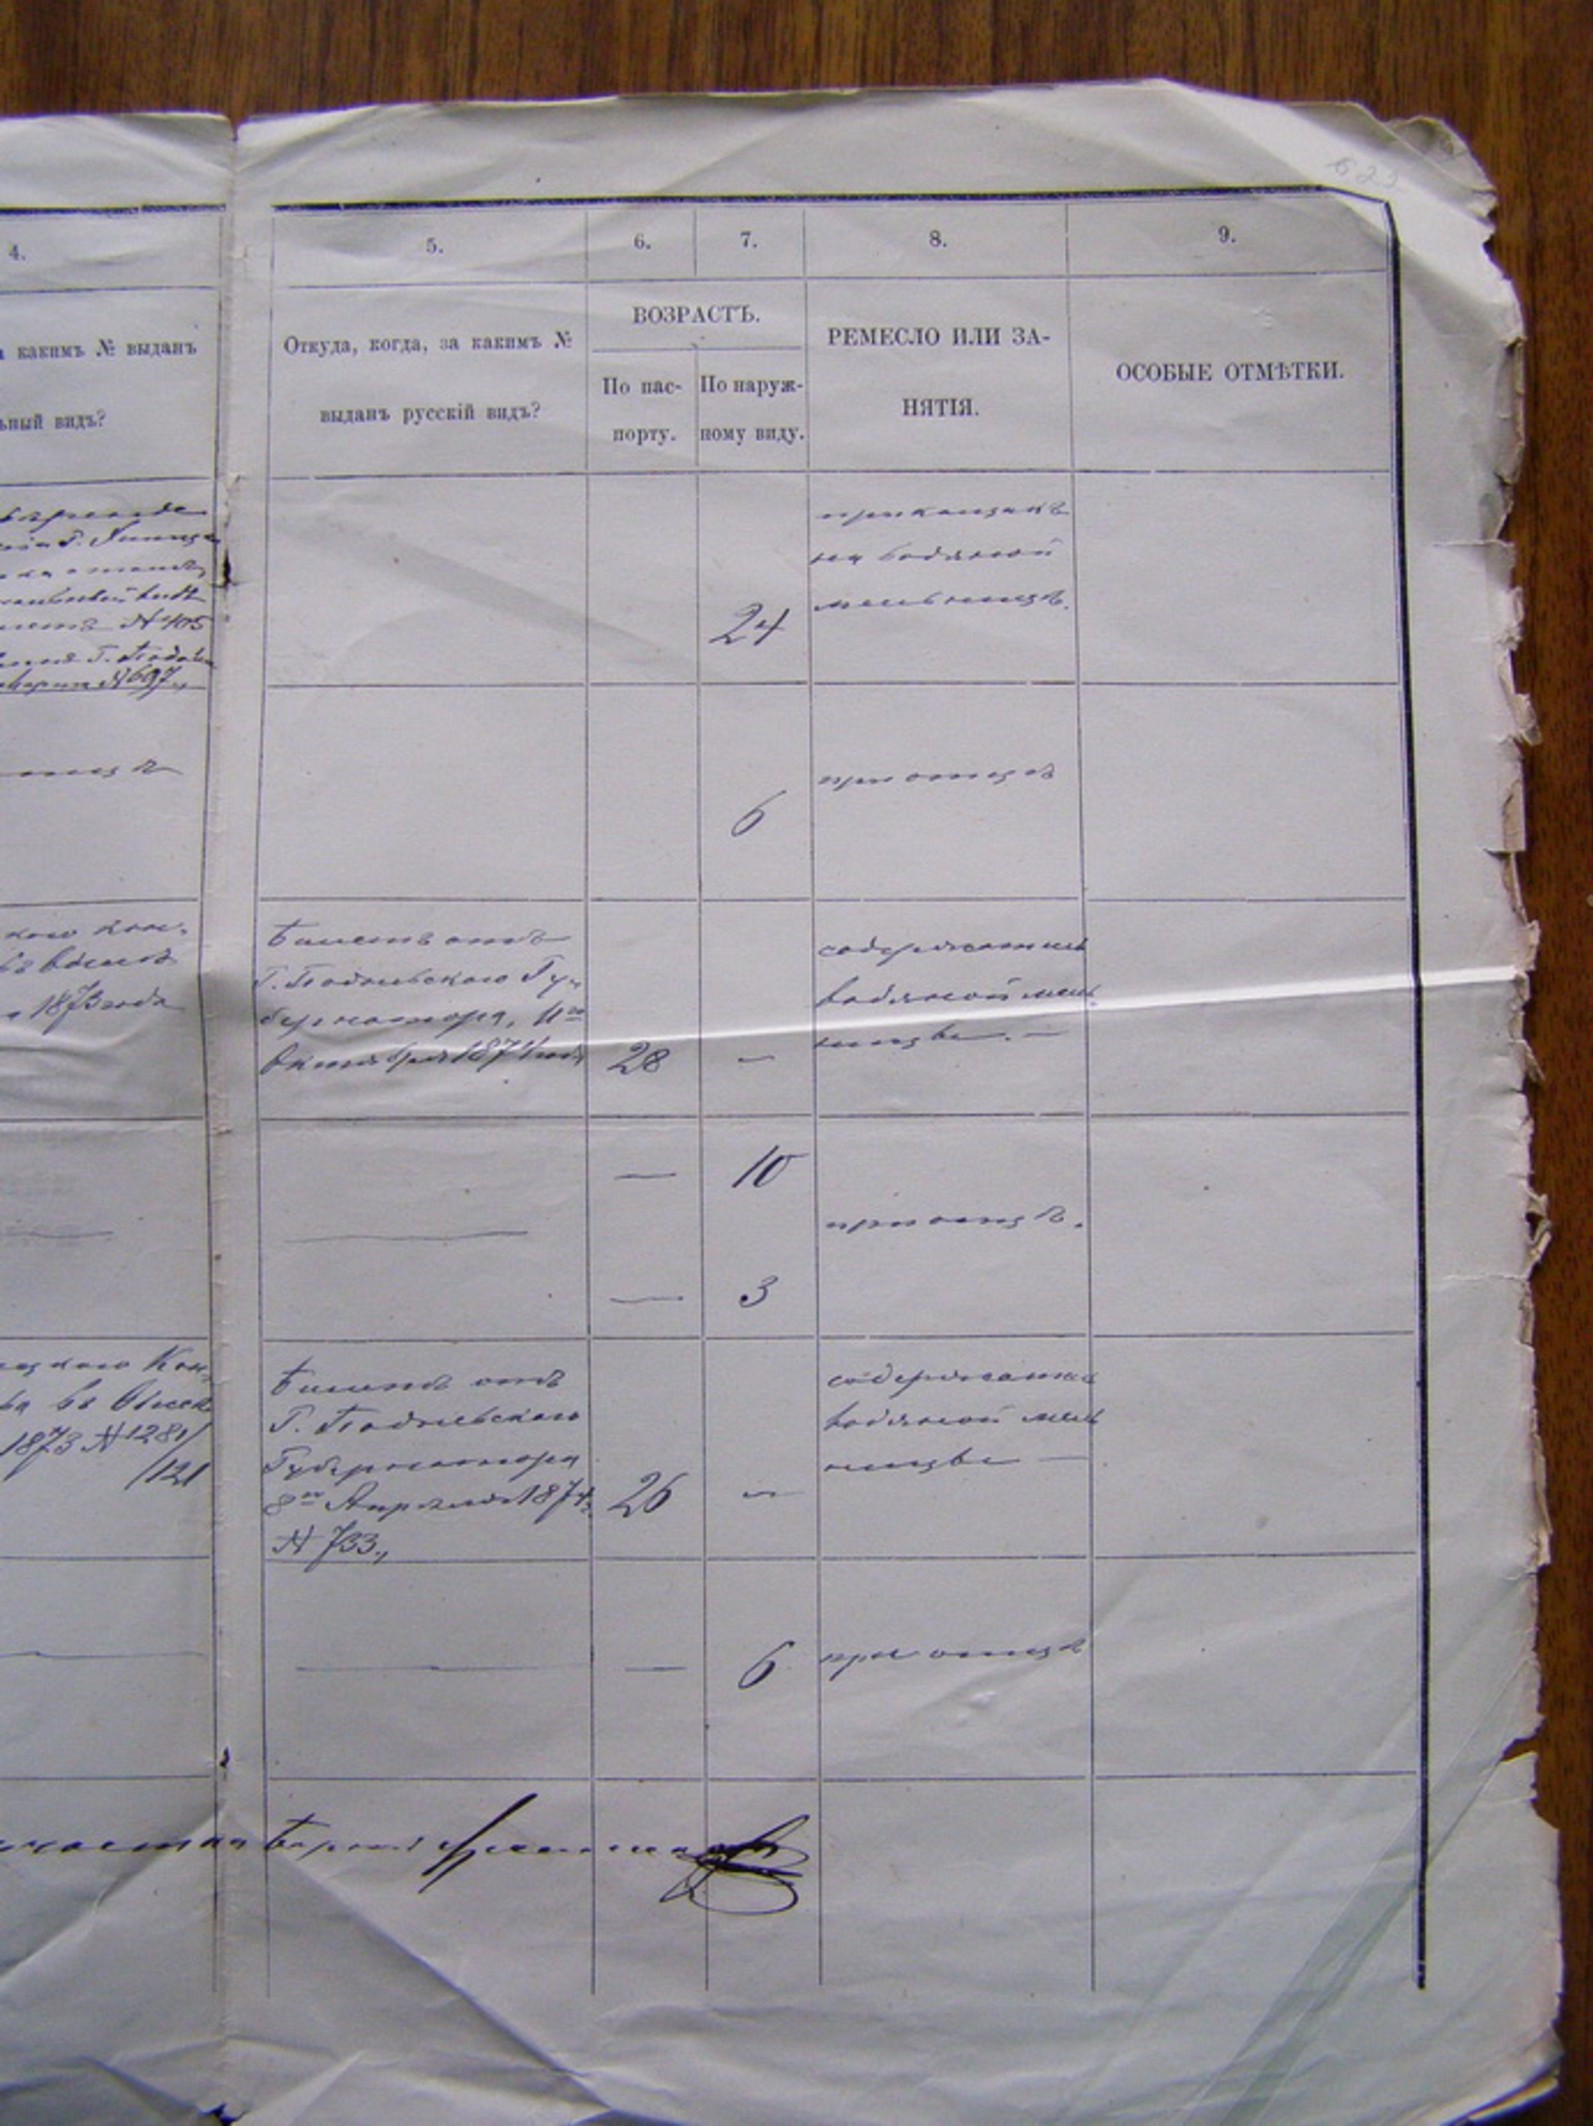 622
4.
5.
6.
7.
8.
9.
какимъ № выданъ
ьный видъ?
Откуда, когда, за какимъ №
выданъ русскій видъ?
ВОЗРАСТЪ.
По пас-
порту.
По наруж-
ному виду.
РЕМЕСЛО ИЛИ ЗА-
НЯТІЯ.
ОСОБЫЕ ОТМѢТКИ.
№ 405
Г. Подоль
№ 697
24
прикащикъ
на водяной
мельницѣ.
6
при отцѣ
1873 года
Билетъ отъ
Г. Подольскаго Гу-
бернатора, 11го
Октября 1874 года
28
—
содержатель
водяной мель-
ницы. —
—
10
—
3
при отцѣ.
1873 № 1281/
/121
Билетъ отъ
Г. Подольскаго
Губернатора
8го Апрѣля 1874
№ 733.
26
—
водяной мель
ницы —
—
6
при отцѣ